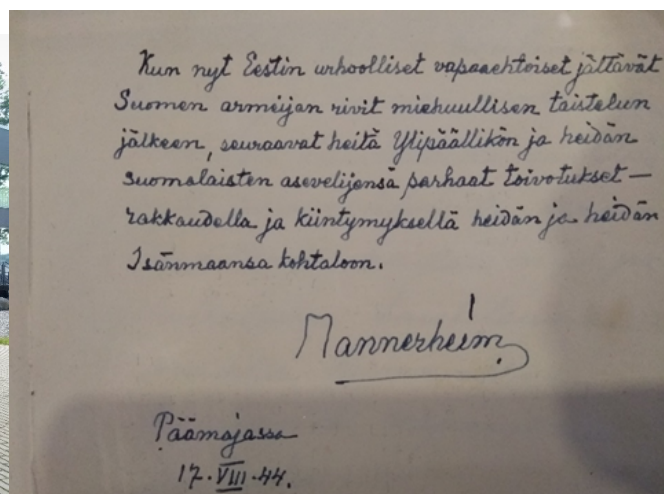 Kun nyt Eestin urhoolliset vapaaehtoiset jättävät
Suomen armeijan rivit miehuullisen taistelun
jälkeen, seuraavat heitä Ylipäällikön ja heidän
suomalaisten aseveljensä parhaat toivotukset —
rakkaudella ja kiintymyksellä heidän ja heidän
Isänmaansa kohtaloon.
Mannerheim
Päämajassa
17.VIII.44.